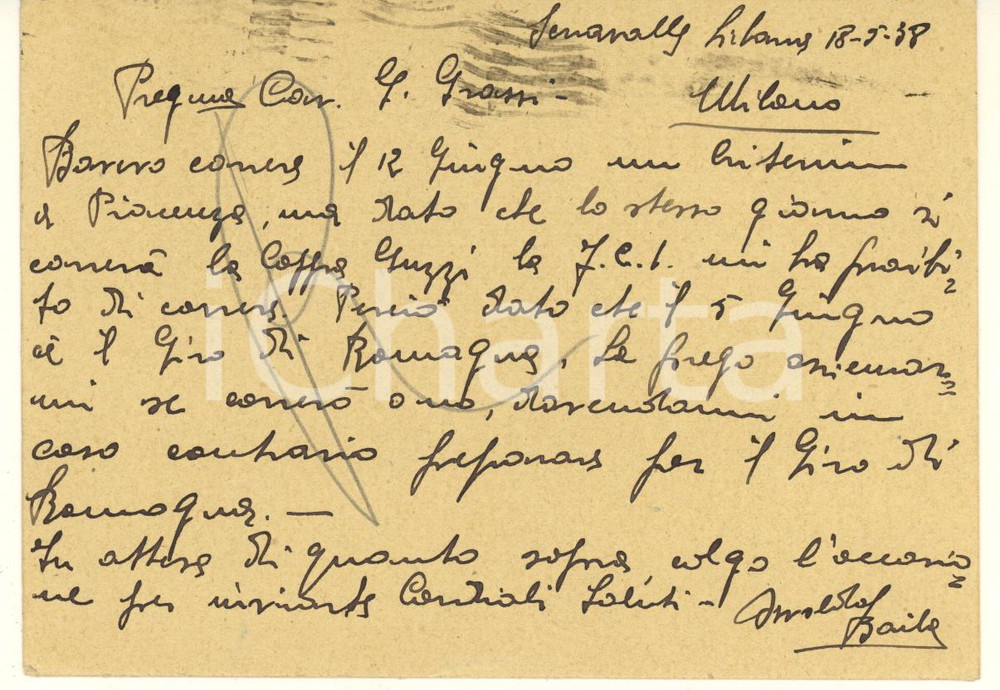 Serravalle Libarna 18-5-38
Preg.mo Cav. G. Grassi -
Milano
Dovevo correre il 12 Giugno un Criterium
a Piacenza, ma dato che lo stesso giorno si
correrà la Coppa Guzzi la F.C.I. mi ha proibi=
to di correre. Perciò dato che il 5 Giugno
c'è il Giro di Romagna, La prego assicurar=
mi se correrò o no, dovendomi in
caso contrario preparare per il Giro di
Romagna. —
In attesa di quanto sopra colgo l'occasio=
ne per inviarle Cordiali Saluti -
Baila
iCharta